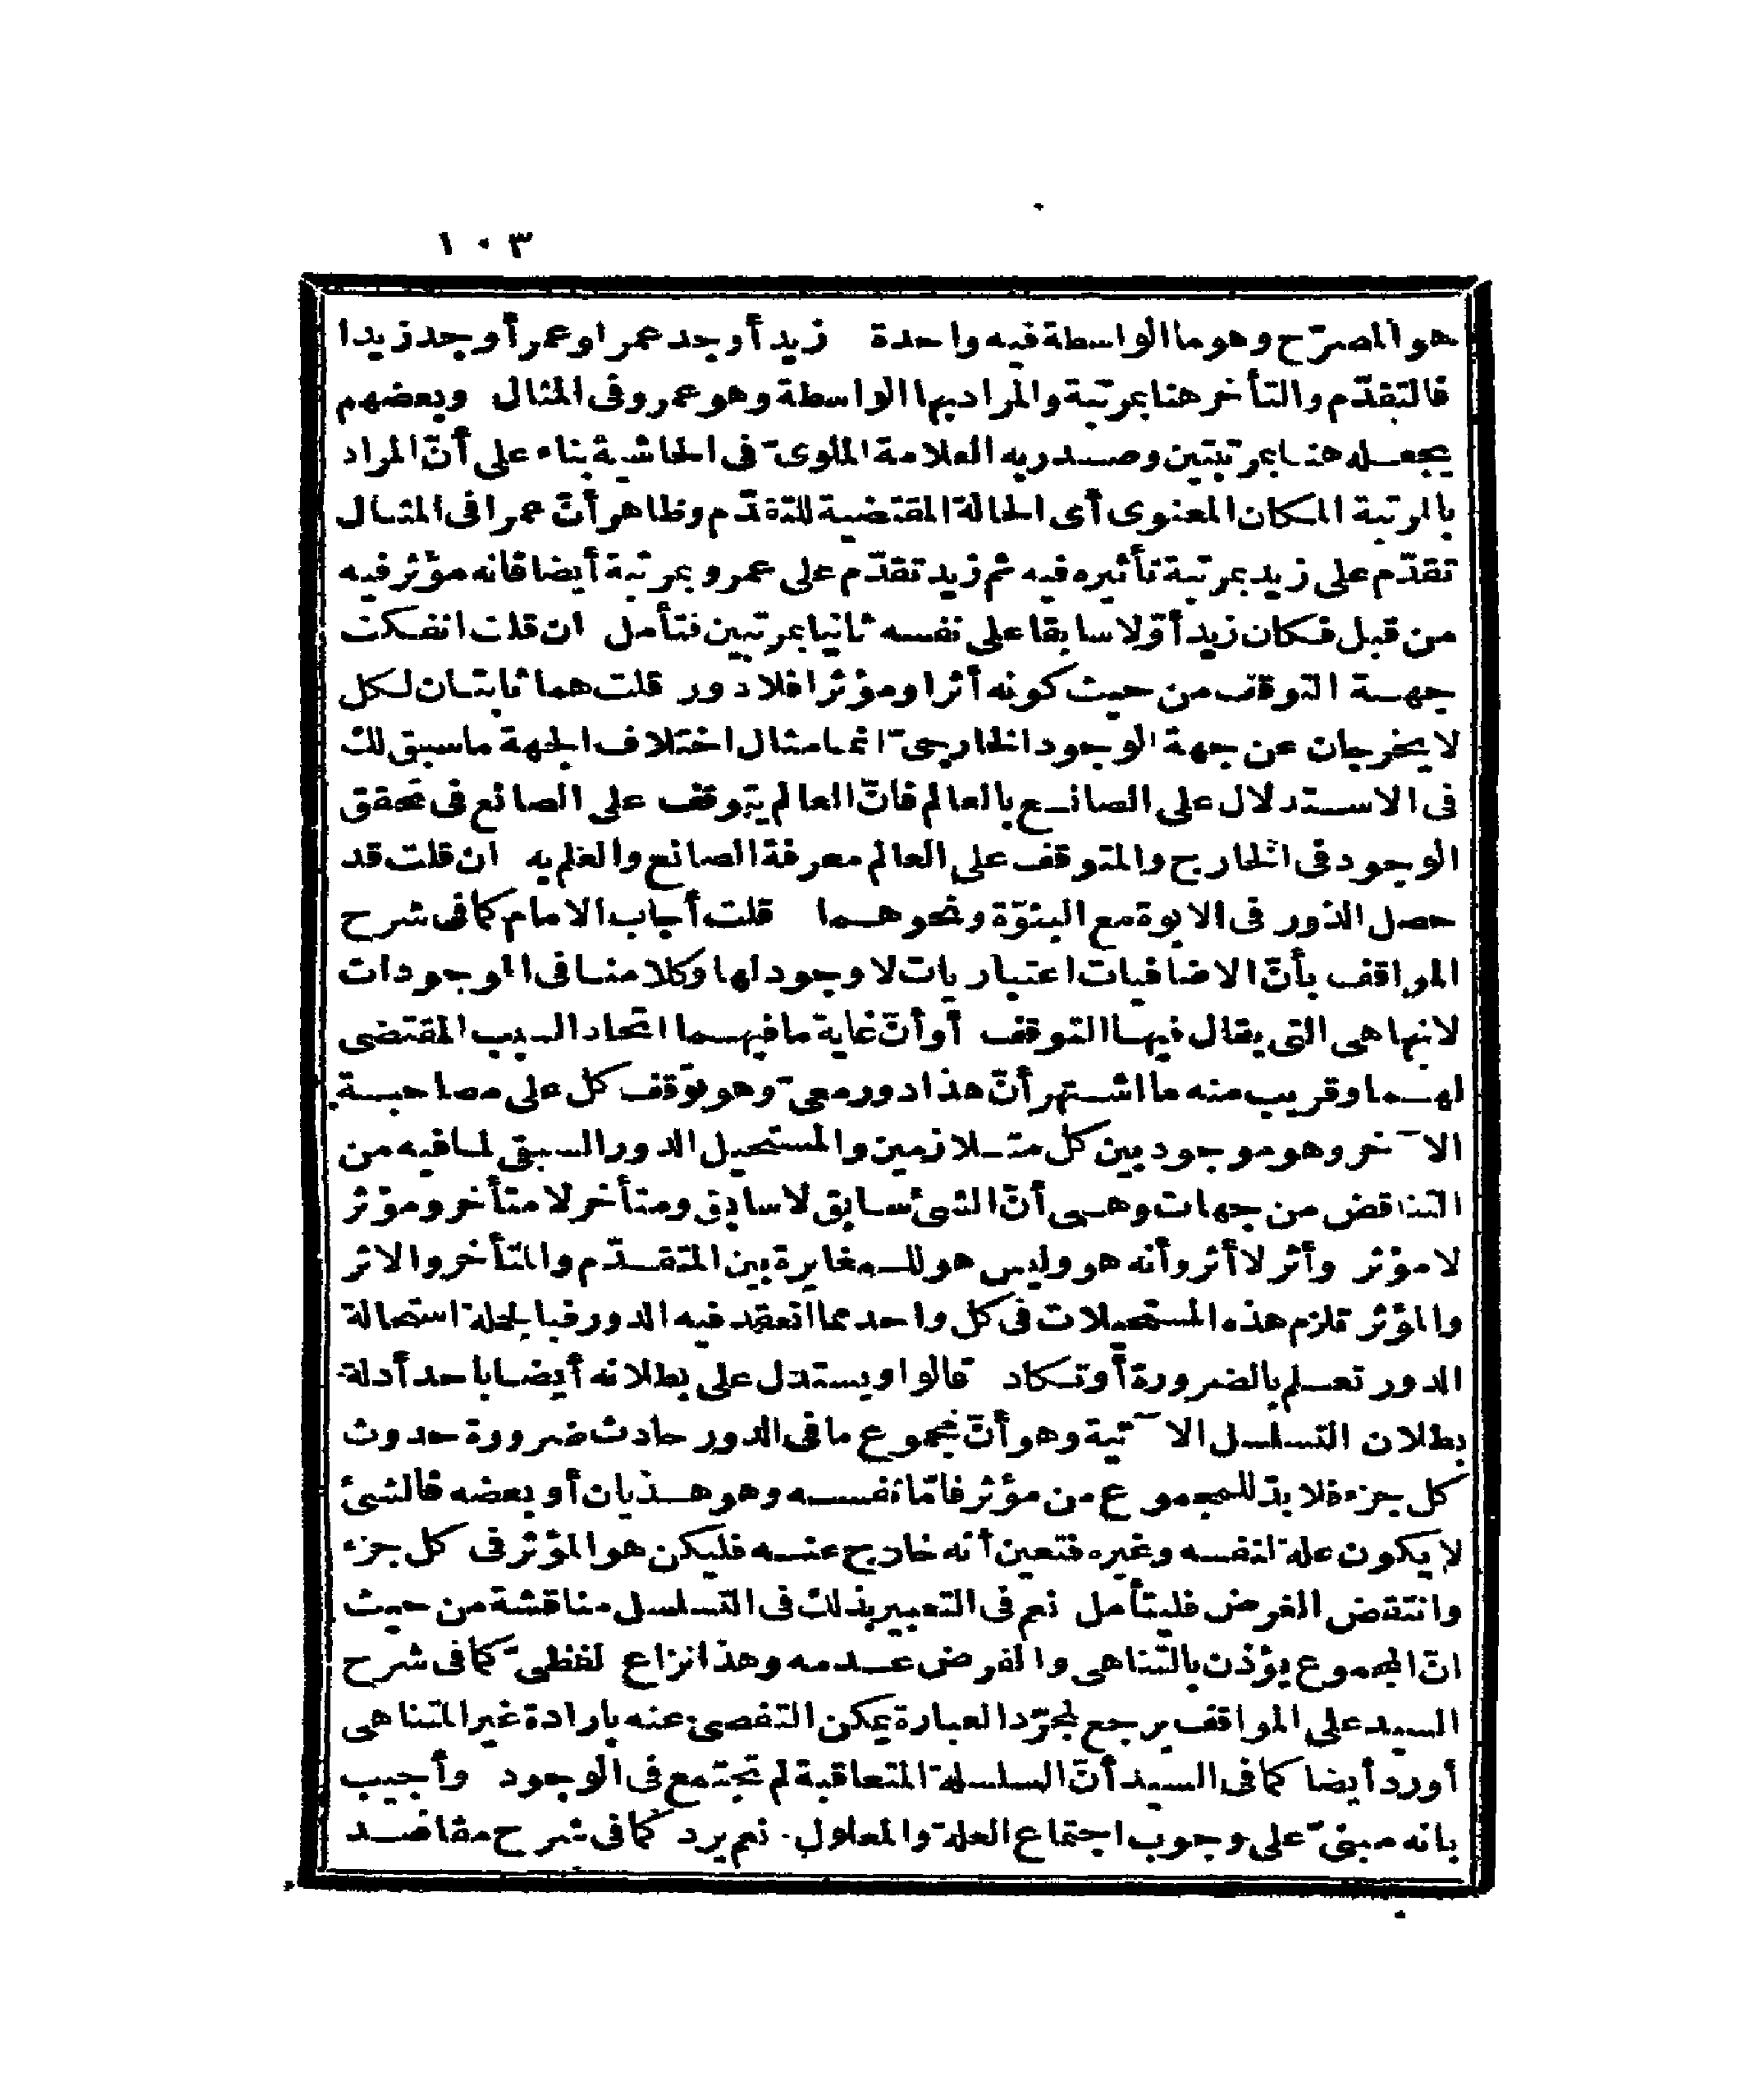 ١٠٣
هو المصرّح وهو ما الواسطة فيه واحدة زيد أوجد عمرا وعمر أوجد زيدا
فالتقدّم والتأخر هنا بمرتبة والمراد بها الواسطة وهو عمرو فى المثال وبعضهم
يجعله هنا بمرتبتين وصدر به العلامة الملوىّ فى الحاشية بناء على أنّ المراد
بالمرتبة المكان المعنوى أى الحالة المقتضية للتقدّم وظاهر أنّ عمرا فى المثال
تقدّم على زيد بمرتبة تأثيره فيه ثم زيد تقدّم على عمرو بمرتبة أيضا فانه مؤثر فيه
من قبل فكان زيد أوّلا سابقا على نفسه ثانيا بمرتبين فتأمل ان قلت انفكت
جهة التوقف من حيث كونه أثرا ومؤثرا فلا دور قلت هما ثابتان لكل
لا يخرجان عن جهة الوجود الخارجىّ انما مثال اختلاف الجهة ما سبق لك
فى الاستدلال على الصانع بالعالم فانّ العالم يتوقف على الصانع فى تحقق
الوجود فى الخارج والمتوقف على العالم معرفة الصانع والعلم به ان قلت قد
حصل الدور فى الابوة مع البنوّة ونحوهما قلت أجاب الامام كما فى شرح
المواقف بأنّ الاضافيات اعتباريات لا وجود لها وكلامنا فى الموجودات
لانها هى التى يقال فيها التوقف أو أنّ غاية ما فيهما اتحاد السبب المقتضى
لهما وقريب منه ما اشتهر أنّ هذا دور معىّ وهو توقف كل على مصاحبة
الآخر وهو موجود بين كل متلازمين والمستحيل الدور السبقى لما فيه من
التناقض من جهات وهى أنّ الشئ سابق لا سابق ومتأخر لا متأخر ومؤثر
لا مؤثر وأثر لا أثر وأنه هو وليس هو للمغايرة بين المتقدّم والمتأخر والاثر
والمؤثر تلزم هذه المستحيلات فى كل واحد مما انعقد فيه الدور فبالجملة استحالة
الدور تعلم بالضرورة أو تكاد قالوا ويستدل على بطلانه أيضا باحد أدلة
بطلان التسلسل الآتية وهو أنّ مجموع ما فى الدور حادث ضرورة حدوث
كل جزء فلا بدّ للمجموع من مؤثر فامّا نفسه وهو هذيان أو بعضه فالشئ
لا يكون علة لنفسه وغيره فتعين أنه خارج عنه فليكن هو المؤثر فى كل جزء
وانتقض الغرض فليتأمل نعم فى التعبير بذلك فى التسلسل مناقشة من حيث
انّ المجموع يؤذن بالتناهى والفرض عدمه وهذا نزاع لفظىّ كما فى شرح
السيد على المواقف يرجع لمجرّد العبارة يمكن التفصى عنه بارادة غير المتناهى
أورد أيضا كما فى السيد أنّ السلسلة المتعاقبة لم تجتمع فى الوجود وأجيب
بانه مبنىّ على وجوب اجتماع العلة والمعلول. نعم يرد كما فى شرح مقاصد